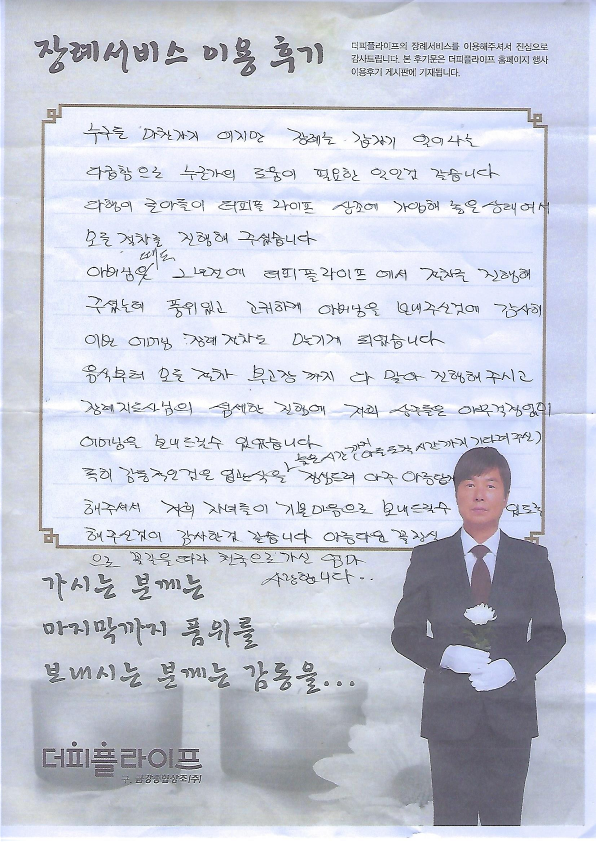 장례서비스 이용 후기
더피플라이프의 장례서비스를 이용해주셔서 진심으로
감사드립니다. 본 후기문은 더피플라이프 홈페이지 행사
이용후기 게시판에 기재됩니다.
누구든 마찬가지 이지만 장례는 갑자기 일어나는
다급함으로 누군가의 도움이 필요한 일인것 같습니다
다행이 큰아들이 더피플 라이프 상조에 가입해 놓은 상태여서
모든 절차를 진행해 주셨습니다
때도
아버님 그녀전에 더피플라이프 에서 절차를 진행해
주셨는데 품위있고 고귀하게 아버님을 보내주신것에 감사해
이번 어머님 장례 절차도 맏기게 되었습니다
음식부터 모든 절차 부고장 까지 다 맡아 진행해 주시고
장례지도사님의 섬세한 진행에 저희 상주들은 아무걱정없이
어머님을 보내드릴수 있었습니다
늦은시간 까지 (아들 도착시간까지 기다려주신)
특히 감동적인것은 입관식을 정성드려 아주 아름답게
해주셔서 저희 자녀들이 기쁜마음으로 보내드릴수 있도록
해주신것이 감사한것 같습니다 아름다운 꽃장식
으로 꽃길을 따라 천국으로 가신 엄마
사랑합니다..
가시는 분께는
마지막까지 품위를
보내시는 분께는 감동을...
더피플라이프
구. 금강종합상조(주)